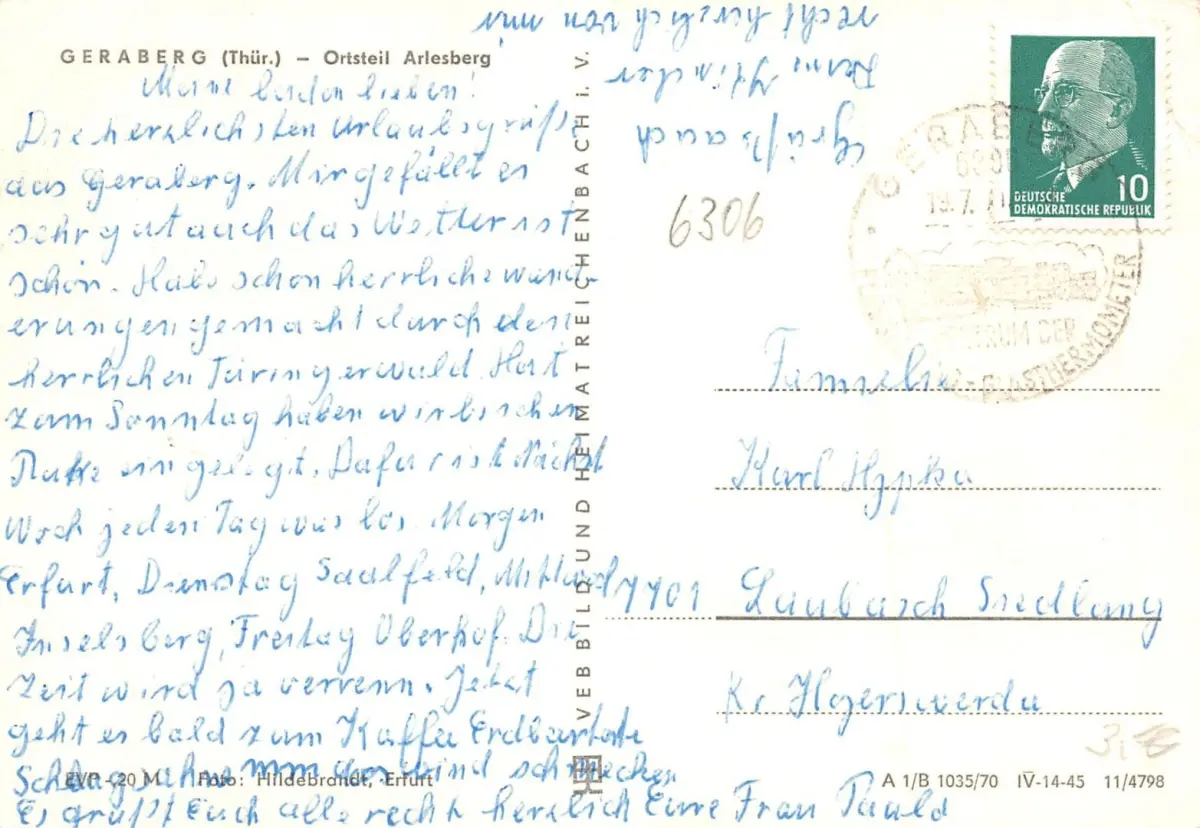 GERABERG (Thür.) – Ortsteil Arlesberg
Meine beiden lieben!
Die herzlichsten Urlaubsgrüße
aus Geraberg. Mir gefällt es
sehr gut auch das Wetter ist
schön. Habe schon herrliche wand-
erungen gemacht durch den
herrlichen Türingerwald. Hat
zum Sonntag haben wir bischen
Ruhe eingelegt. Dafur ist Nächst
Woch jeden Tag was los. Morgen
Erfurt, Dienstag Saalfeld, Mittwoch
Inselsberg, Freitag Oberhof. Die
Zeit wird ja verrenn. Jetzt
geht es bald zum Kaffee Erdbertorte
Schlagsahne mm das wird schmecken
Es grüßt Euch alle recht herzlich Eure Frau
EVP -,20 M Foto: Hildebrandt, Erfurt
VEB BILD UND HEIMAT REICHENBACH i. V.
Grüße auch
Deine
recht herzlich von mir
6306
DEUTSCHE
DEMOKRATISCHE REPUBLIK
10
GERABERG
19.7.71
ZENTRUM DER
GLASTHERMOMETER
Familie
Karl Hypka
7701 Laubusch Siedlung
Kr Hoyerswerda
A 1/B 1035/70 IV-14-45 11/4798